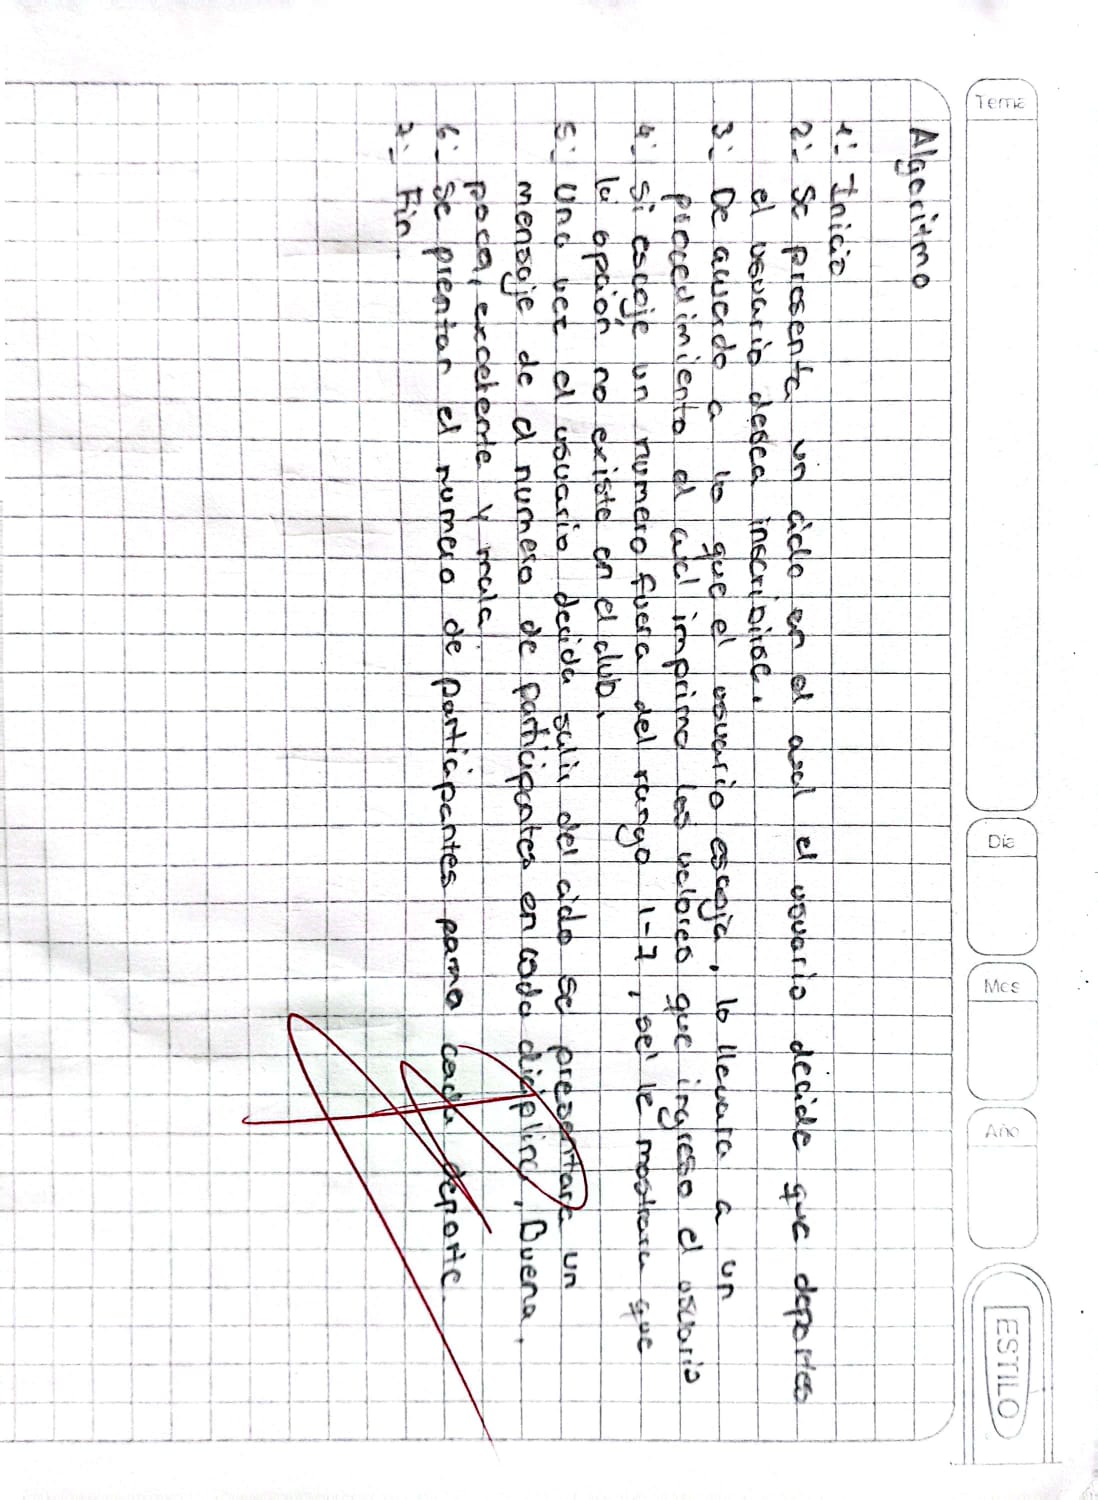 Tema
Dia
Mes
Año
ESTILO
Algoritmo
1:- Inicio
2:- Se presenta un ciclo en el cual el usuario decide que deportes
el usuario desea inscribirse.
3:- De acuerdo a lo que el usuario escoja, lo llevara a un
procedimiento el cual imprime los valores que ingreso el usuario
4:- Si escoje un numero fuera del rango 1-7, se le mostrara que
la opción no existe en el club.
5:- Una vez el usuario decida salir del ciclo se presentara un
mensaje de el numero de participantes en cada diciplina, Buena,
poca, excelente y mala.
6:- Se prentan el numero de participantes para cada deporte.
7:- Fin.